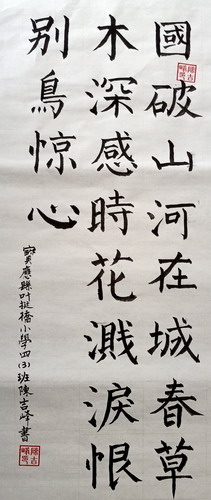 國破山河在城春草
木深感時花濺淚恨
别鳥惊心
寶應縣叶挺橋小學四(3)班陳吉峰書